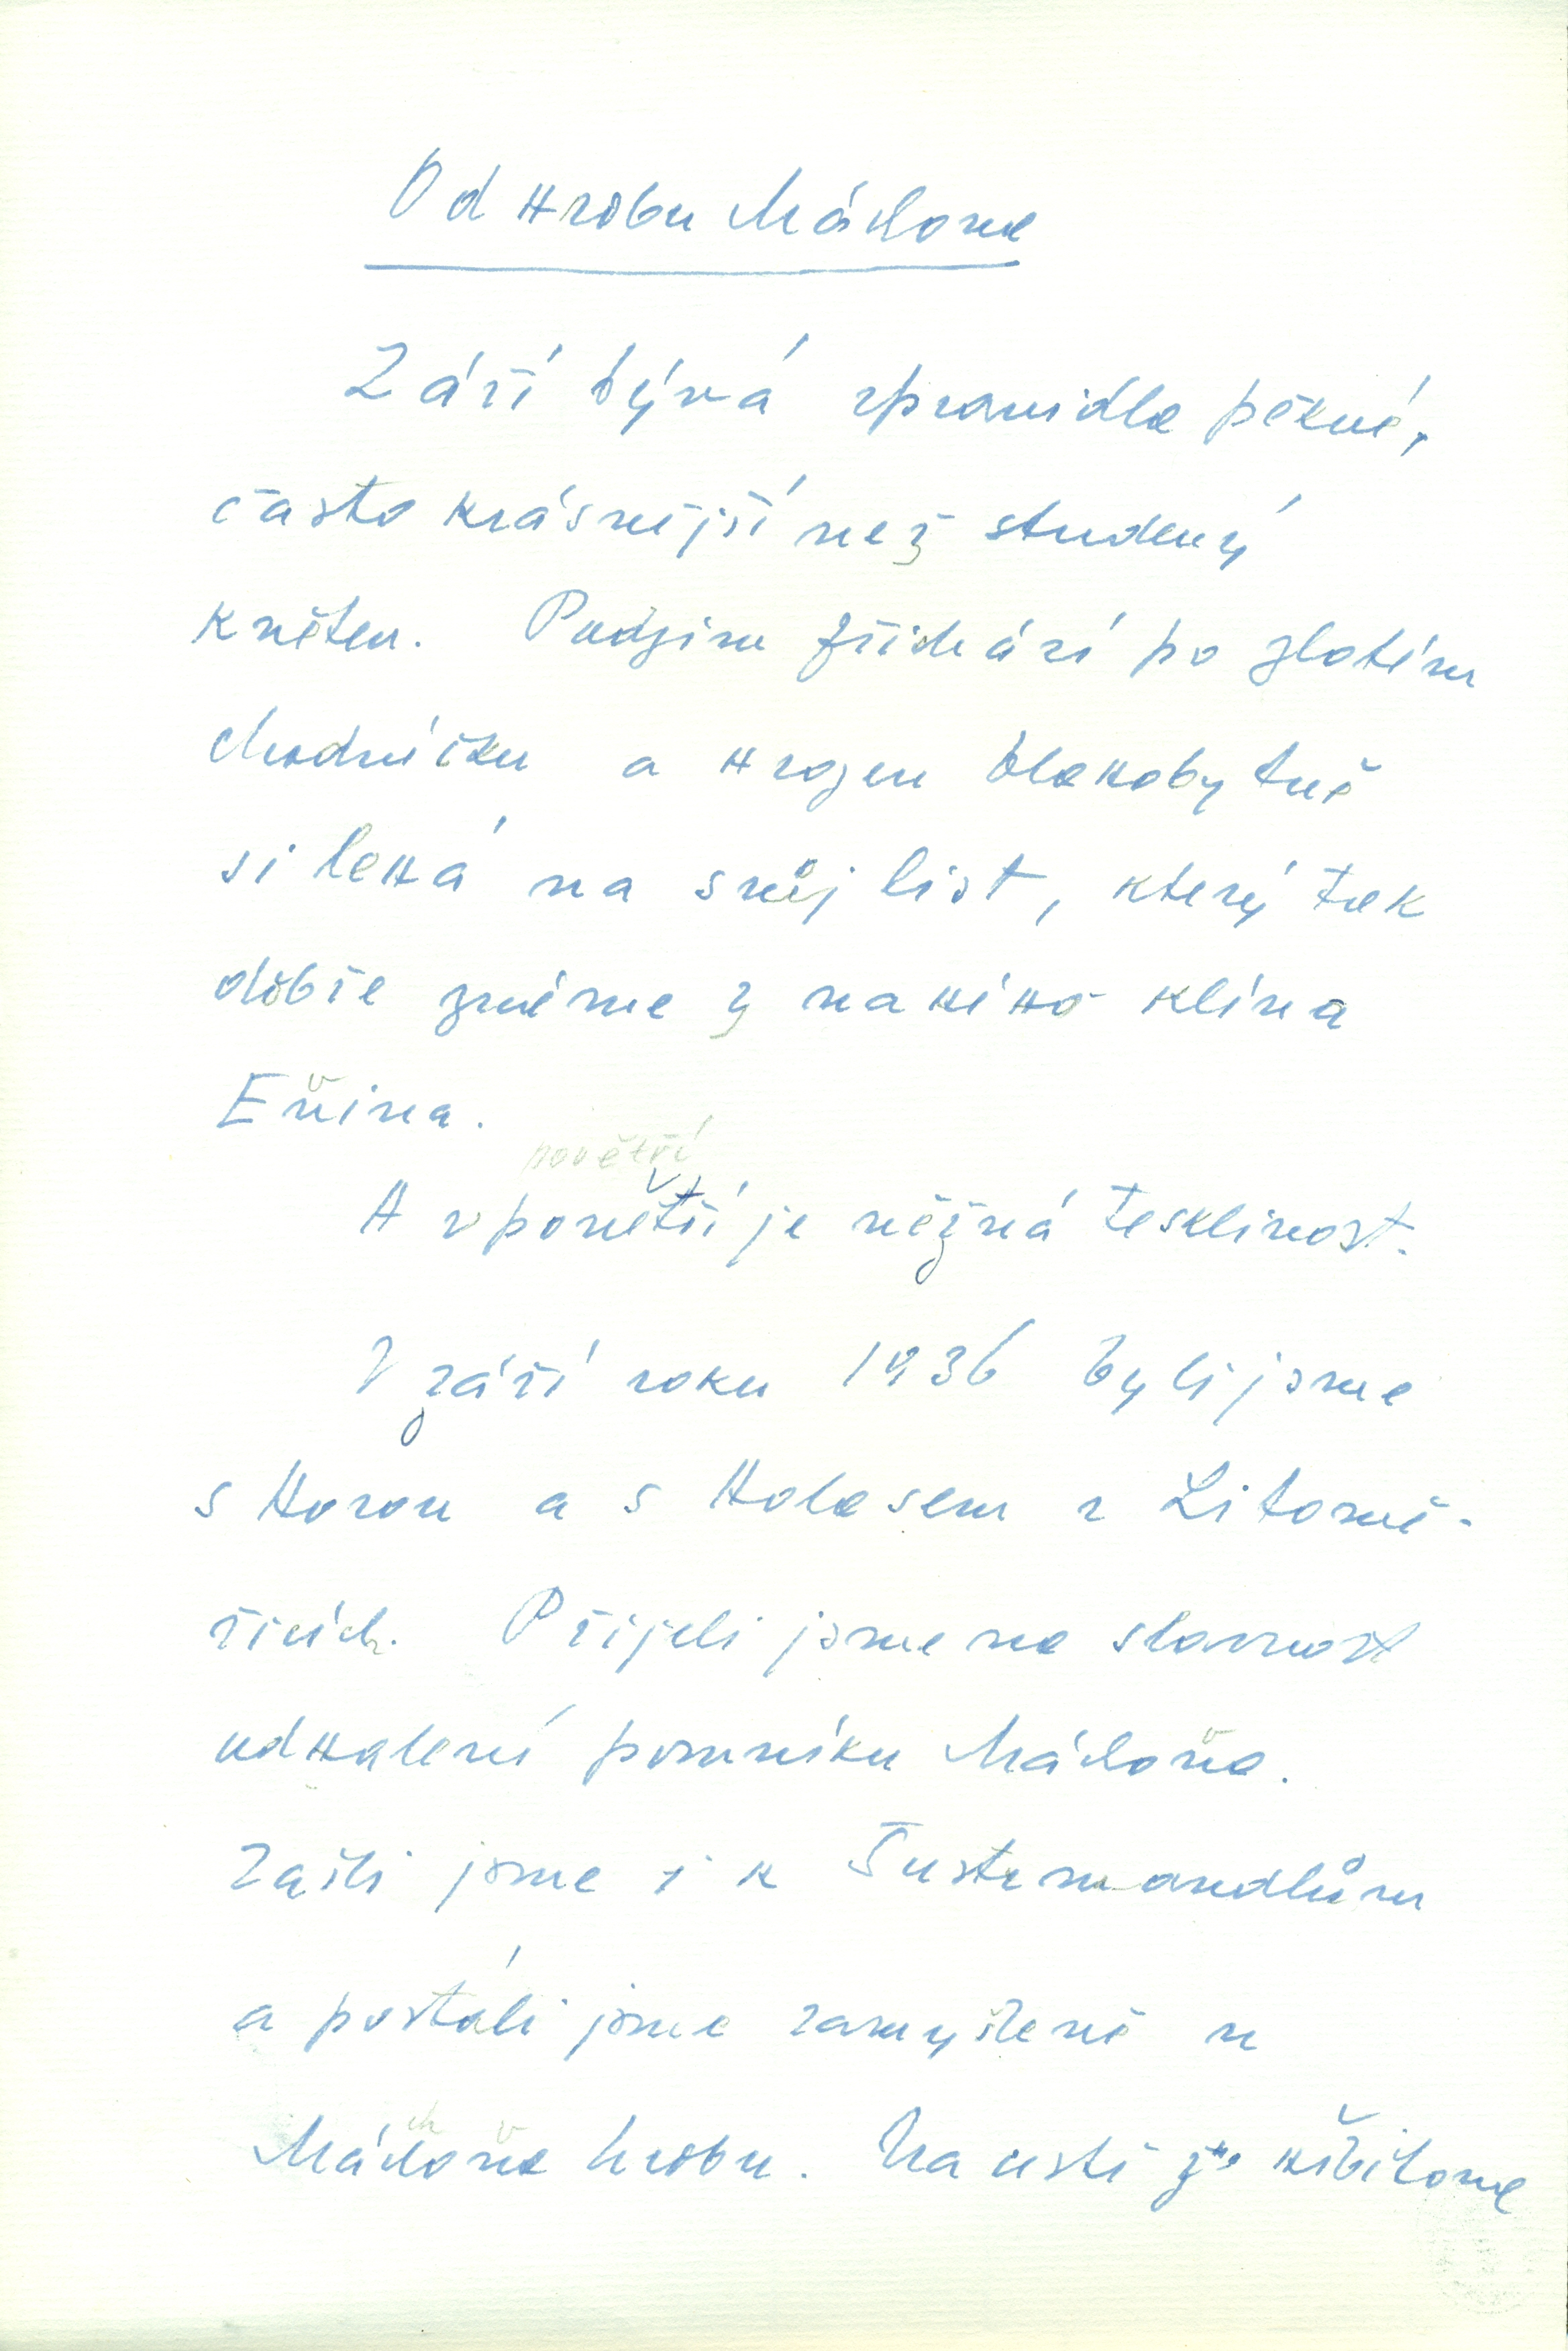 Od hrobu Máchova
Září bývá zpravidla pěkné,
často krásnější než studený
květen. Podzim přichází po zlatém
chodníčku a hrozen blahobytně
si lehá na svůj list, který tak
dobře známe z nahého klína
Evina.
povětří
A v povětří je něžná tesklivost.
V září roku 1936 byli jsme
s Horou a s Halasem v Litomě-
řicích. Přijeli jsme na slavnost
odhalení pomníku Máchova.
Zašli jsme i k Šustrmandlům
a postáli jsme zamyšleně u
Máchova hrobu. Na cestě ze hřbitova